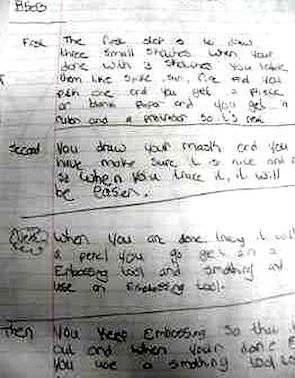 First The first step is to draw
three small sketches when your
done with 3 sketches you
them like sun, fire and you
pick one and you get a piece
or blank paper and you get a
ruler and a so it's neat
Second You draw your mask and you
have make sure it is nice and
so when you trace it, it will
be easier.
When you are done tracing it with
a pencil you go get an a
Embossing tool and smothing and
use an Embossing tool.
Then You keep Embossing so that it
out and when your done E
you use a smothing tool to